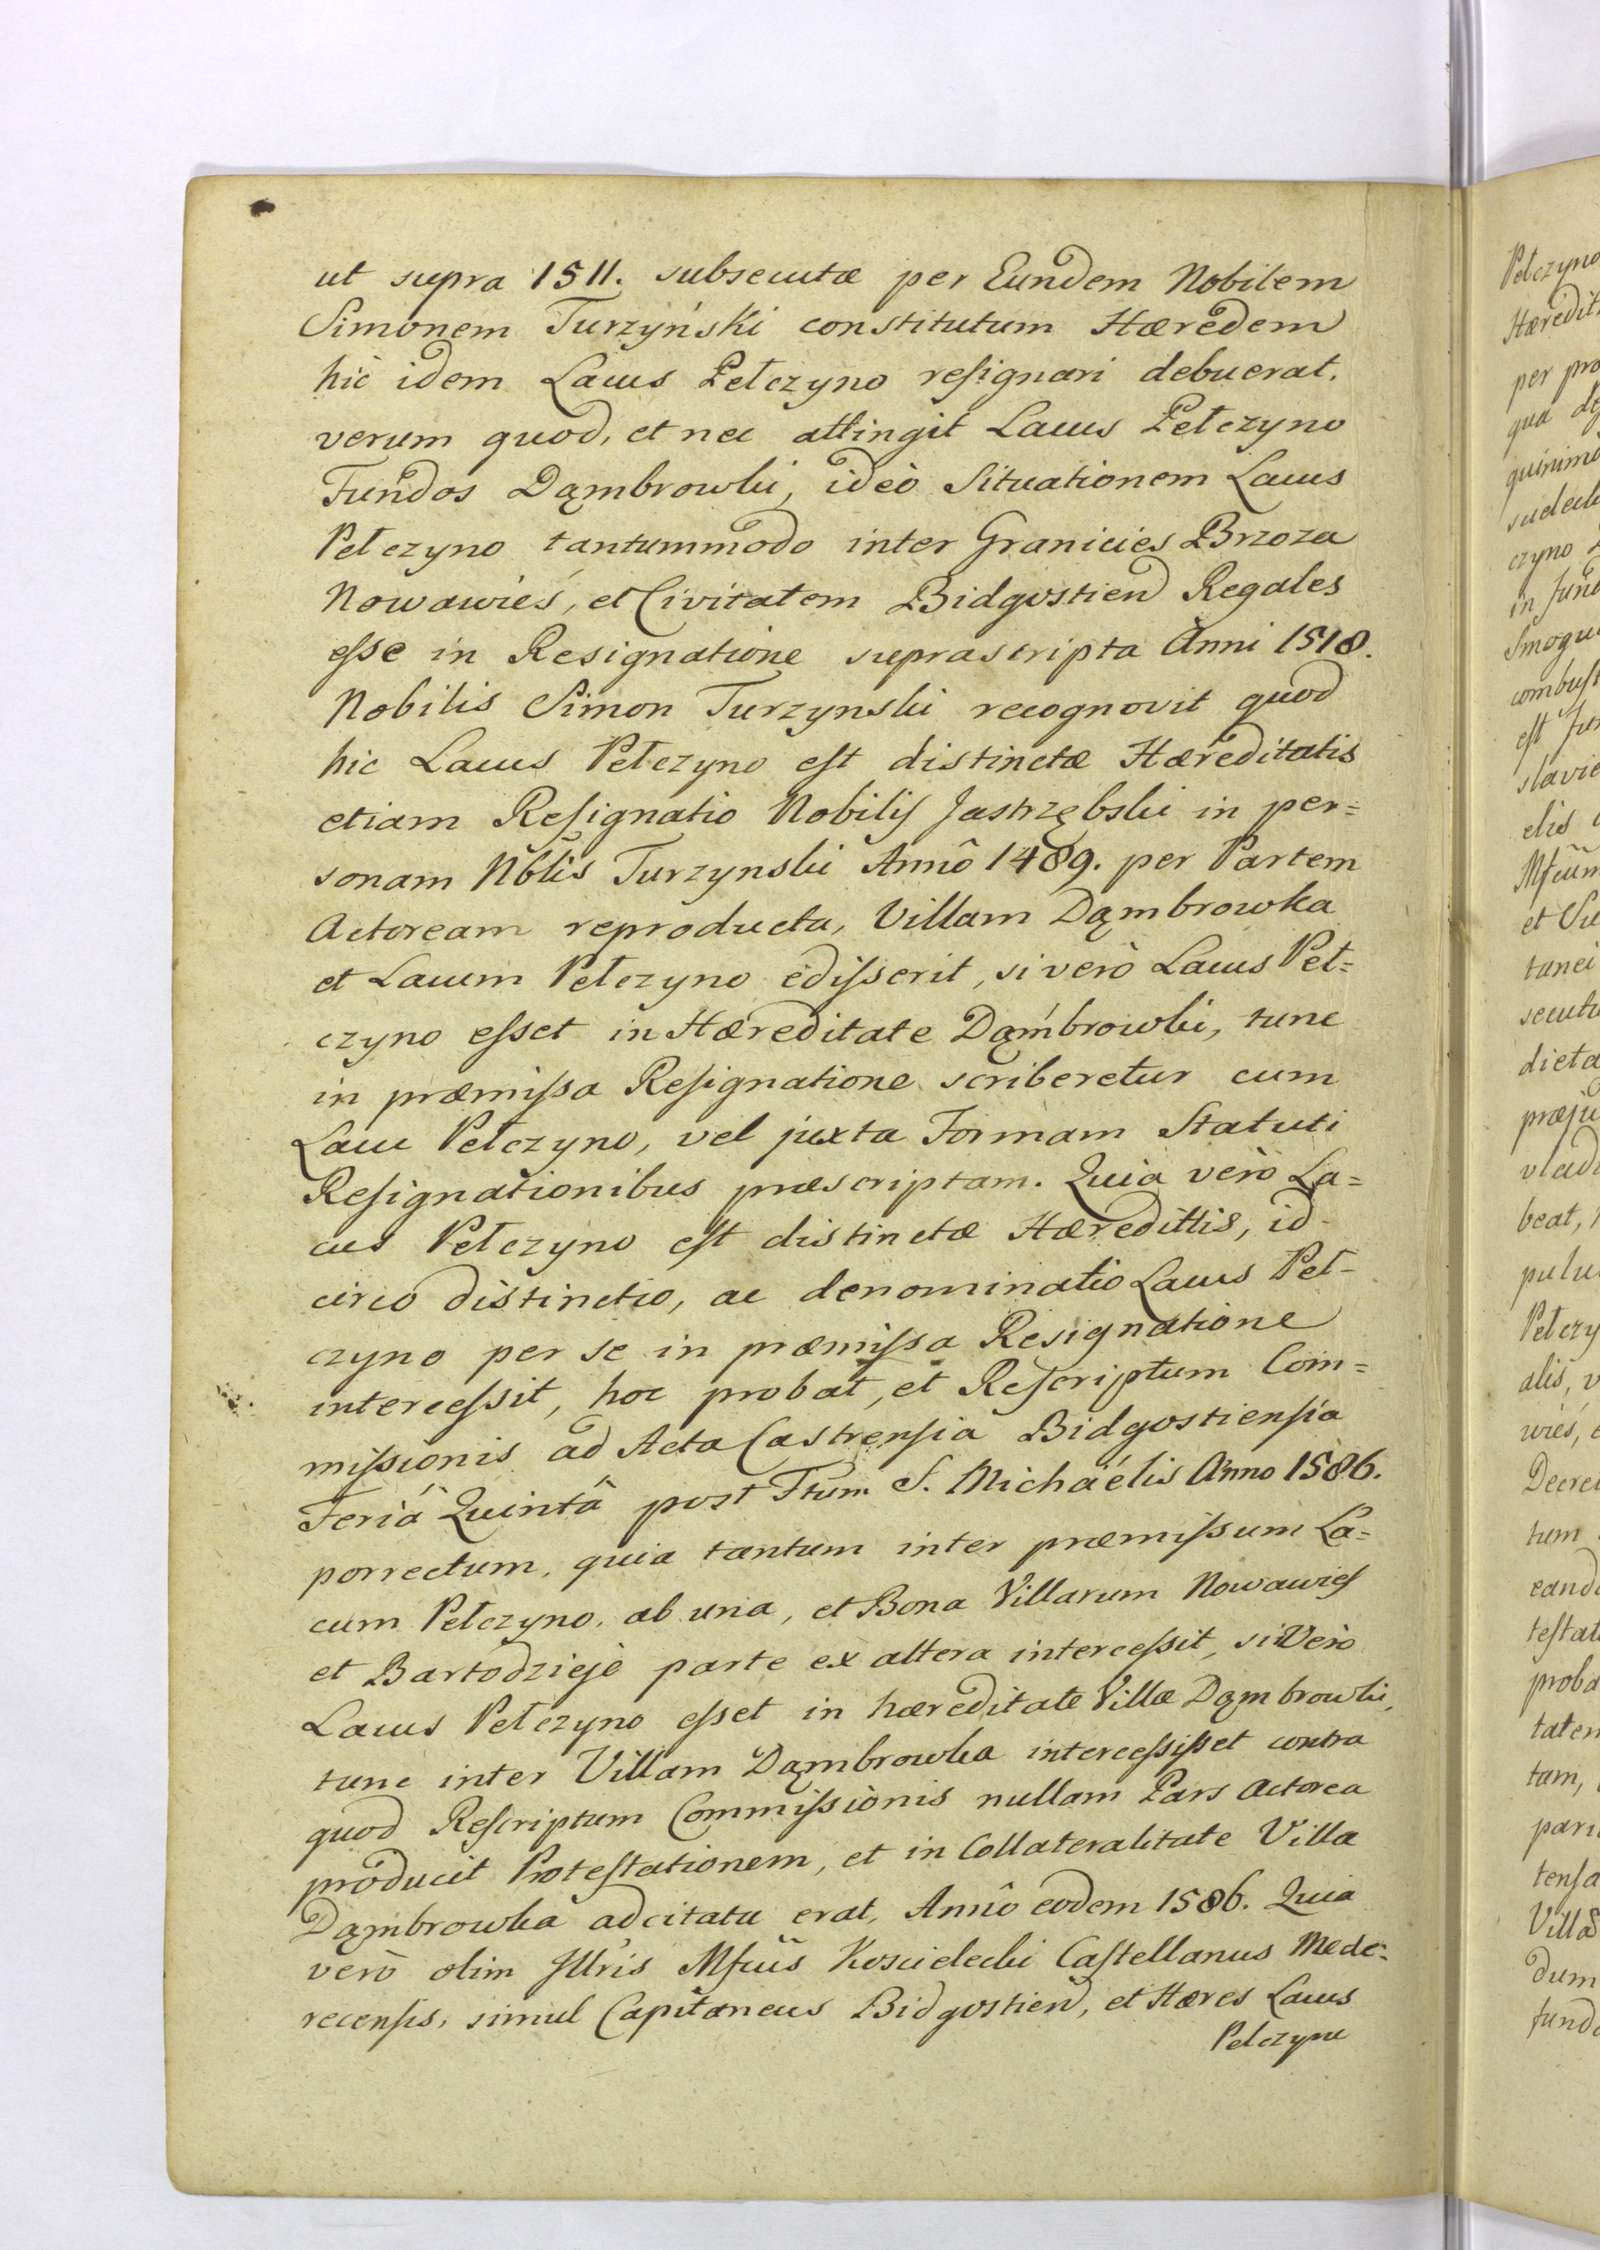 ut supra 1511. subsecutæ per Eundem Nobilem
Simonem Turzyński constitutum Hæredem
hic idem Lacus Pełczyno resignari debuerat,
verum quod, et nec attingit Lacus Pełczyno
Fundos Dąmbrowki, ideò Situationem Lacus
Pełczyno tantummodo inter Granicies Brzoza
Nowawieś, et Civitatem Bidgostien Regales
esse in Resignatione suprascripta Anni 1518.
Nobilis Simon Turzynski recognovit quod
hic Lacus Pełczyno est distinctæ Hæreditatis
etiam Resignatio Nobilis Jastrzębski in per=
sonam Nblis Turzynski Annô 1489. per Partem
Actoream reproducta, Villam Dąmbrowka
et Lacum Pełczyno edisserit, si verò Lacus Peł=
czyno esset in Hæreditate Dąmbrowki, tunc
in præmissa Resignatione scriberetur cum
Lacu Pełczyno, vel juxta Formam Statuti
Resignationibus præscriptam. Quia verò La=
cus Pełczyno est distinctæ Hæredittis, id-
circò distinctio, ac denominatio Lacus Peł-
czyno per se in præmissa Resignatione
intercessit, hoc probat, et Rescriptum Com=
missionis ad Acta Castrensia Bidgostiensia
Feriâ Quintâ post Ftum S. Michaélis Anno 1586.
porrectum, quia tantum inter præmissum La=
cum Pełczyno, ab una, et Bona Villarum Nowawies
et Bartodzieje parte ex altera intercessit, si Verò
Lacus Pełczyno esset in hæreditate Villæ Dąmbrowki,
tunc inter Villam Dąmbrowka intercessisset contra
quod Rescriptum Commissionis nullam Pars Actorea
producit Protestationem, et in Collateralitate Villa
Dąmbrowka adcitata erat, Annô eodem 1586. Quia
verò olim Jllris Mfcus Koscielecki Castellanus Mede=
recensis, simul Capitaneus Bidgostien, et Hæres Lacus
Pełczyno
Pełczyno
per pro
in fund
est fun
et Su
tanei
secutu
dicta
vladi
beat,
Pełczy
alis, v
wieś, e
Decre
tum
testat
proba
taten
tam,
tensa
Villæ
dum